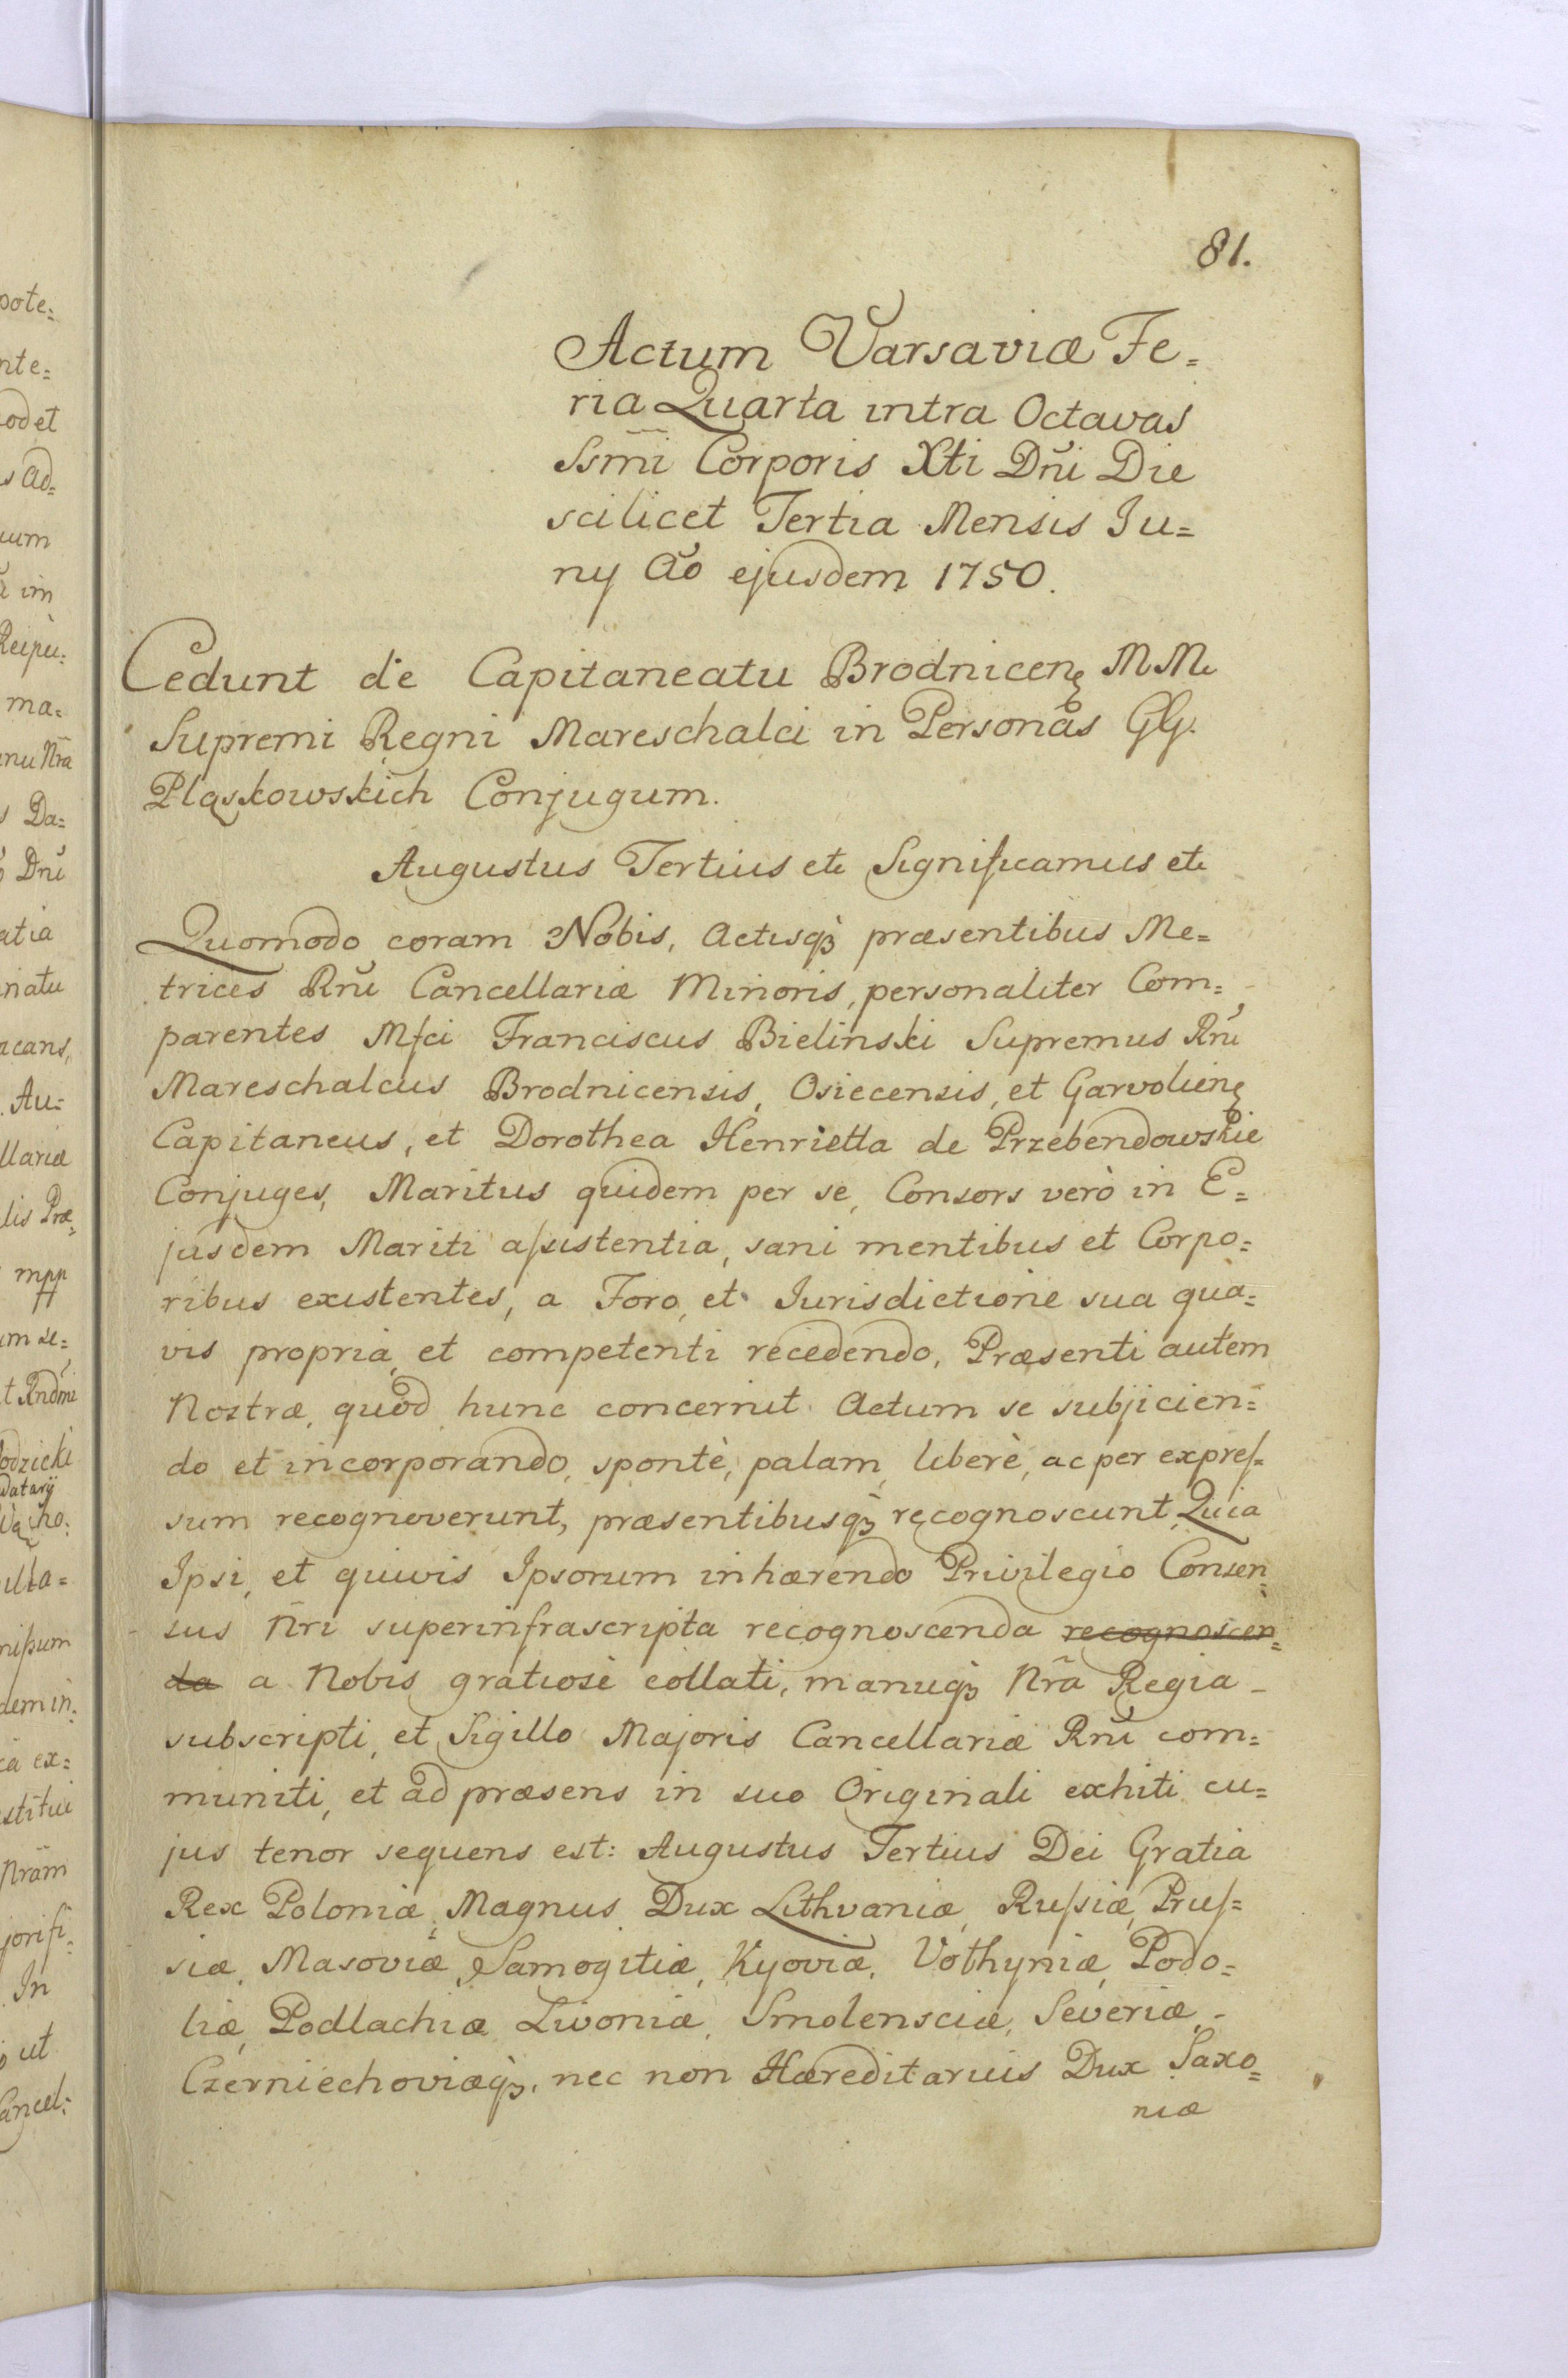 81.
Actum Varsaviæ Fe=
ria Quarta intra Octavas
Ssm̄i Corporis Xti Dn̄i Die
scilicet Tertia Mensis Ju=
ny Aō ejusdem 1750.
Cedunt de Capitaneatu Brodnicenę MM
Supremi Regni Mareschalci in Personas GG.
Pląskowskich Conjugum.
Augustus Tertius etc Significamus etc
Quomodo coram Nobis, Actisqꝫ præsentibus Me=
trices Rn̄i Cancellariæ Minoris, personaliter Com=
parentes Mfci Franciscus Bielinski Supremus Rn̄i
Mareschalcus Brodnicensis, Osiecensis, et Garvolienę
Capitaneus, et Dorothea Henrietta de Przebendowskie
Conjuges, Maritus quidem per se, Consors verò in E=
jusdem Mariti aſsistentia, sani mentibus et Corpo=
ribus existentes, a Foro, et Jurisdictione sua qua=
vis propria, et competenti recedendo, Præsenti autem
Nostræ, quod hunc concernit Actum se subjicien=
do et incorporando, spontè, palam, liberè, ac per expreſ=
sum recognoverunt, præsentibusqꝫ recognoscunt, Quia
Ipsi, et quivis Ipsorum inhærendo Privilegio Consen=
sus Nr̄i superinfrascripta recognoscenda recognoscen=
da a Nobis gratiosè collati, manuqꝫ Nr̄a Regia -
subscripti, et Sigillo Majoris Cancellariæ Rn̄i com=
muniti, et ad præsens in suo Originali exhiti cu=
jus tenor sequens est: Augustus Tertius Dei Gratia
Rex Poloniæ, Magnus Dux Lithvaniæ, Ruſsiæ, Pruſ=
siæ, Masoviæ, Samogitiæ, Kyoviæ, Vothyniæ, Podo=
liæ, Podlachiæ Livoniæ, Smolensciæ, Severiæ, -
Czerniechoviæqꝫ, nec non Hæreditarius Dux Saxo=
niæ